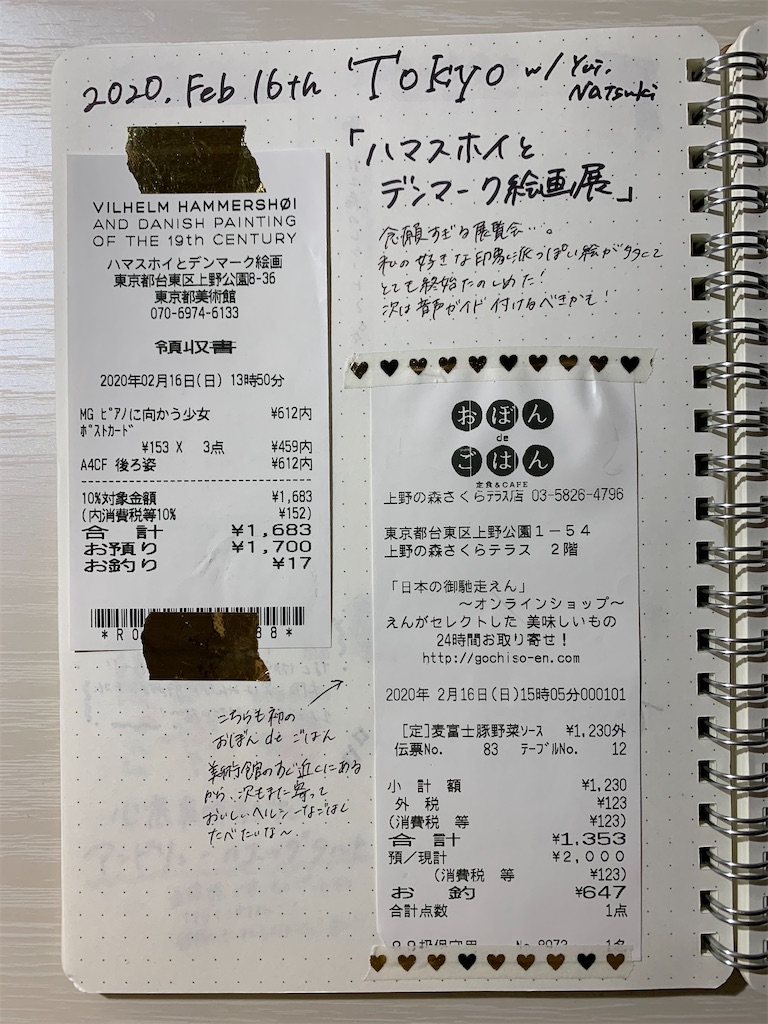 2020. Feb 16th Tokyo w/ Yui. Natsuki
「ハマスホイと
デンマーク絵画展」
念願すぎる展覧会…。
私の好きな印象派っぽい絵が多くて
とても終始たのしめた！
次は音声ガイド付けるべきかも！
VILHELM HAMMERSHØI
AND DANISH PAINTING
OF THE 19th CENTURY
ハマスホイとデンマーク絵画
東京都台東区上野公園8-36
東京都美術館
070-6974-6133
領収書
2020年02月16日(日) 13時50分
MG ﾋﾟｱﾉに向かう少女 ¥612内
ﾎﾟｽﾄｶｰﾄﾞ
¥153 X 3点 ¥459内
A4CF 後ろ姿 ¥612内
10%対象金額 ¥1,683
(内消費税等10% ¥152)
合計 ¥1,683
お預り ¥1,700
お釣り ¥17
おぼん
de
ごはん
定食&CAFE
上野の森さくらﾃﾗｽ店 03-5826-4796
東京都台東区上野公園１－５４
上野の森さくらテラス ２階
「日本の御馳走えん」
～オンラインショップ～
えんがセレクトした 美味しいもの
24時間お取り寄せ！
http://gochiso-en.com
2020年 2月16日(日)15時05分000101
[定]麦富士豚野菜ｿｰｽ ¥1,230外
伝票No. 83 ﾃｰﾌﾞﾙNo. 12
小 計 額 ¥1,230
外 税 ¥123
(消費税 等 ¥123)
合 計 ¥1,353
預／現計 ¥2,000
(消費税 等 ¥123)
お 釣 ¥647
合計点数 1点
こちらも初の
おぼん de ごはん
美術館のすぐ近くにある
から、次もまた寄って
おいしいヘルシーなごはん
たべたいな～